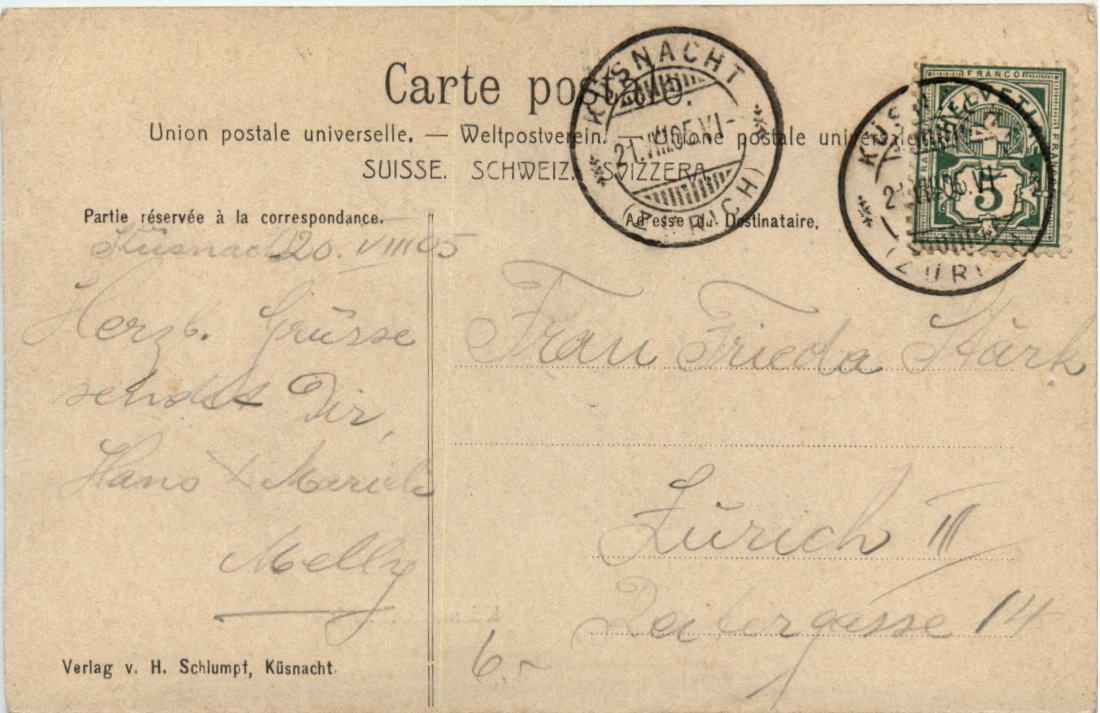 Carte postale.
Union postale universelle. — Weltpostverein. — Unione postale universale
SUISSE. SCHWEIZ. SVIZZERA.
KÜSNACHT
21.VIII.05.VI-
(ZÜRICH)
FRANCO
HELVETIA
5
KÜSNACHT
21.VIII.05.VI-
(ZÜRICH)
Partie réservée à la correspondance.
Adresse du Destinataire.
Küsnacht 20. VIII 05
Herzb. Grüsse
sendet Dir,
Hans &
Melly
Frau Frieda Stärk
Zürich III
14
6.-
Verlag v. H. Schlumpf, Küsnacht